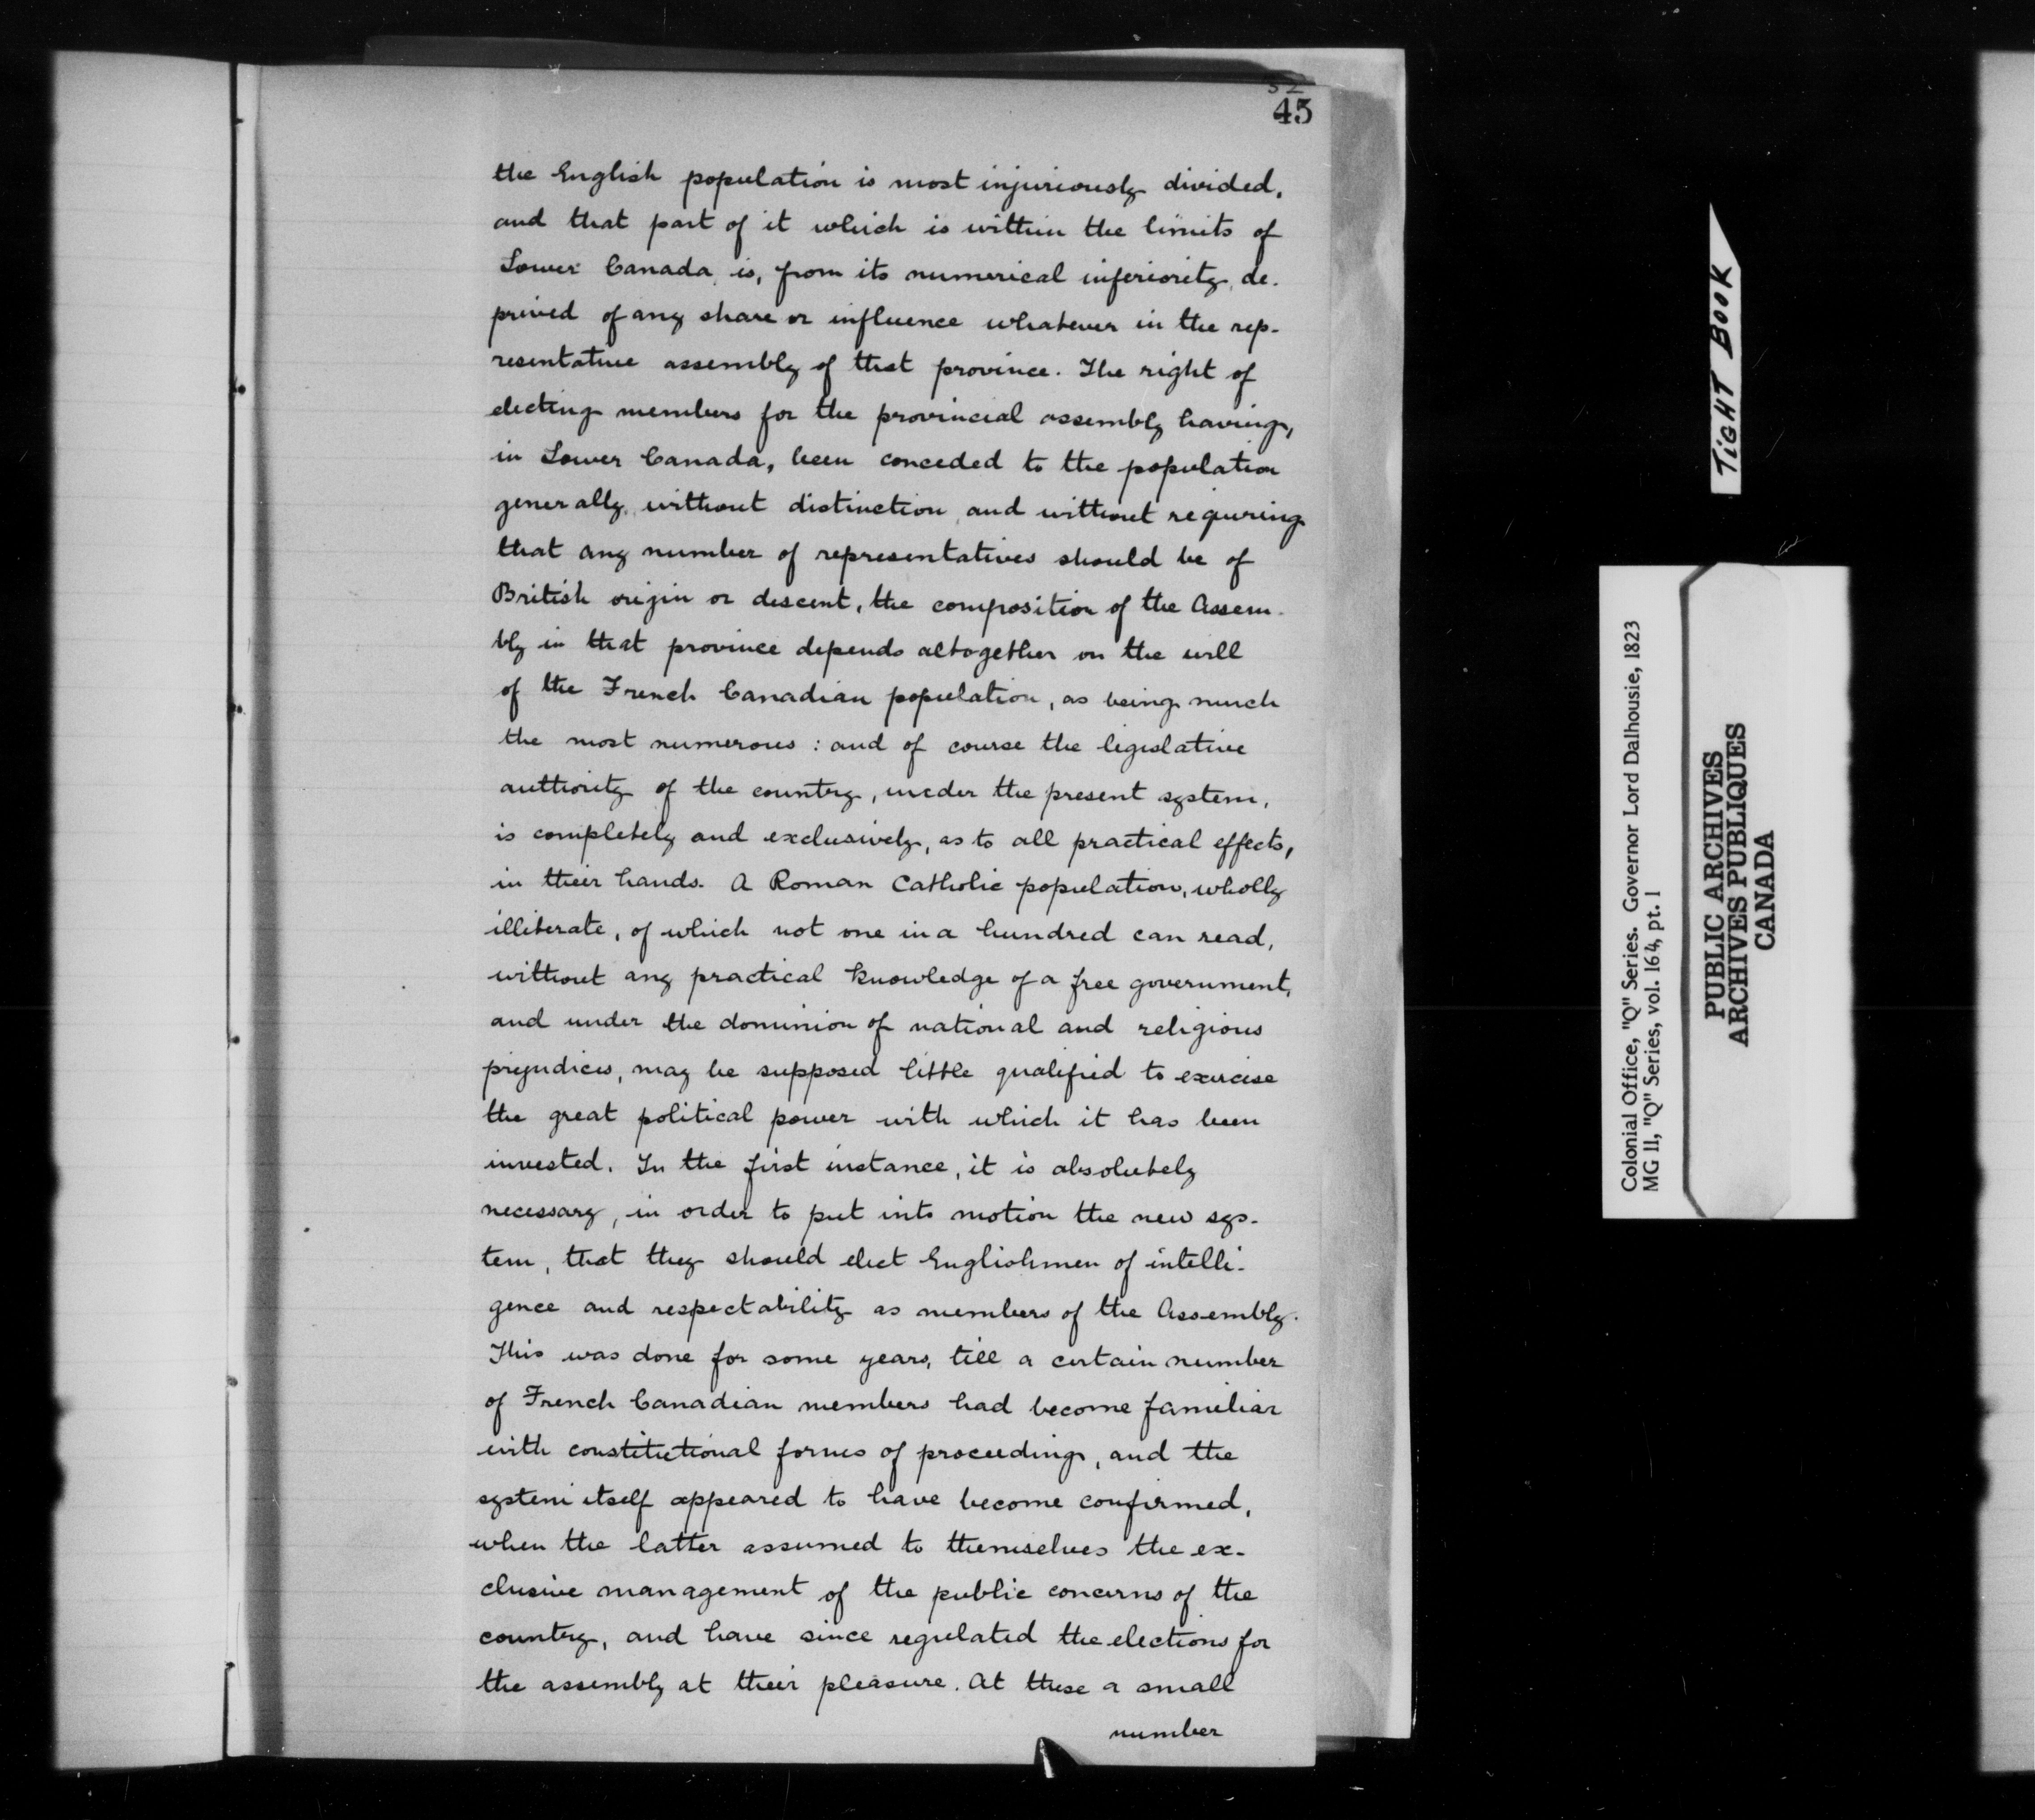 52
45
the English population is most injuriously divided,
and that part of it which is within the limits of
Lower Canada, is, from its numerical inferiority, de-
prived of any share or influence whatever in the rep-
resentative assembly of that province. The right of
electing members for the provincial assembly having,
in Lower Canada, been conceded to the population
generally, without distinction, and without requiring
that any number of representatives should be of
British origin or descent, the composition of the Assem-
bly in that province depends altogether on the will
of the French Canadian population, as being much
the most numerous : and of course the legislative
authority of the country, under the present system,
is completely and exclusively, as to all practical effects,
in their hands. A Roman Catholic population, wholly
illiterate, of which not one in a hundred can read,
without any practical knowledge of a free government,
and under the dominion of national and religious
prejudices, may be supposed little qualified to exercise
the great political power with which it has been
invested. In the first instance, it is absolutely
necessary, in order to put into motion the new sys-
tem, that they should elect Englishmen of intelli-
gence and respectability as members of the Assembly.
This was done for some years, till a certain number
of French Canadian members had become familiar
with constitutional forms of proceeding, and the
system itself appeared to have become confirmed,
when the latter assumed to themselves the ex-
clusive management of the public concerns of the
country, and have since regulated the elections for
the assembly at their pleasure. At these a small
number
TIGHT BOOK
Colonial Office, "Q" Series. Governor Lord Dalhousie, 1823
MG 11, "Q" Series, vol. 164, pt. 1
PUBLIC ARCHIVES
ARCHIVES PUBLIQUES
CANADA